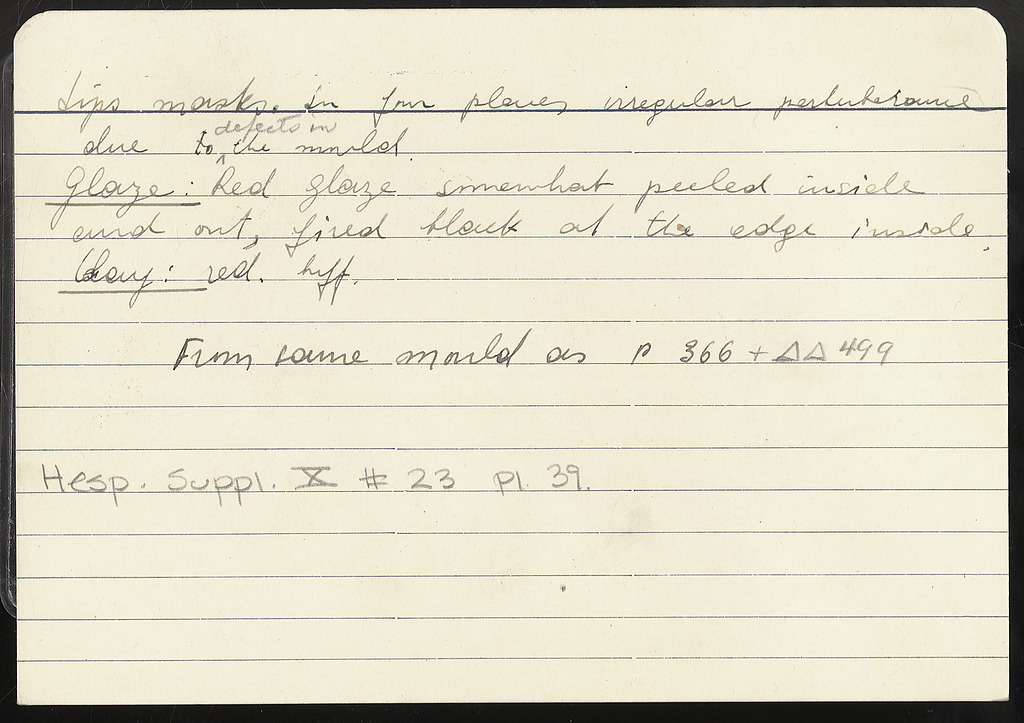 Lips masks. In four places, irregular perturberance
due to defects in the mould.
Glaze: Red glaze somewhat peeled inside
and out, fired black at the edge inside.
Clay: red. buff.
From same mould as P 366 + ΔΔ 499
Hesp. Suppl. X # 23 pl. 39.